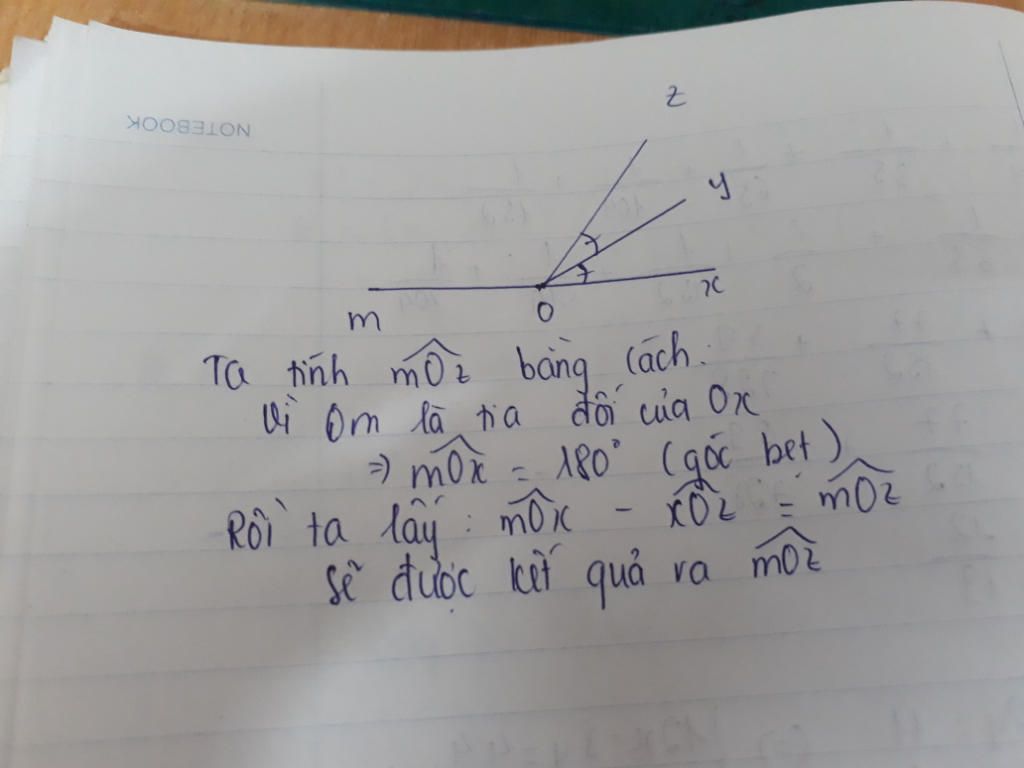 NOTEBOOK
z
y
x
m
O
Ta tính mOz bằng cách:
Vì Om là tia đối của Ox
=> mOx = 180° (góc bet)
Rồi ta lấy: mOx - xOz = mOz
sẽ được kết quả ra mOz